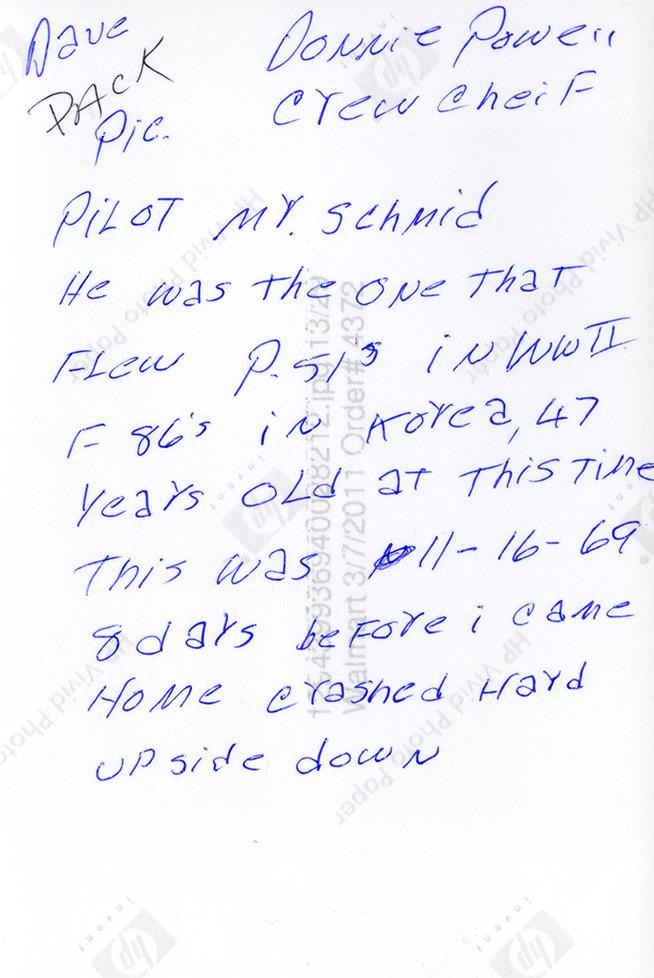 Dave Donnie Powell
PACK Crew Cheif
Pic.
PiLOT MY. Schmid
He was the one that
FLew P.51s iN WWII
F 86's iN Korea, 47
Years OLd aT This TiMe
This was 11-16-69
8 days beFore i came
Home crashed Hard
UP side down
Walmart 3/7/2011 Order# 4372
HP Vivid Photo Paper
hp
invent